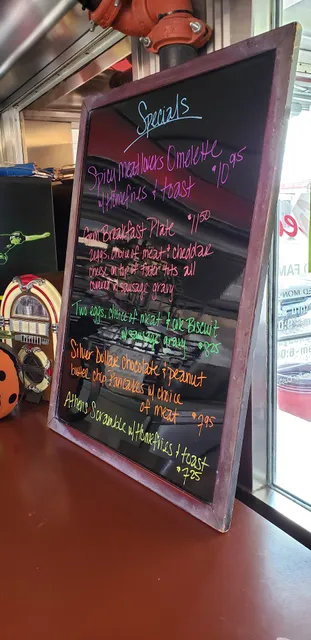 Specials
Spicy Meatlovers Omelette
w/ Homefries & toast $10.95
Breakfast Plate $11.50
2 eggs, choice of meat & cheddar
cheese on top of tater tots all
covered n sausage gravy
Two eggs, choice of meat & one Biscuit
w/ sausage gravy $8.25
Silver Dollar chocolate & peanut
butter chip Pancakes w/ choice
of meat $7.95
Athens Scramble w/ Homefries & toast
$7.25